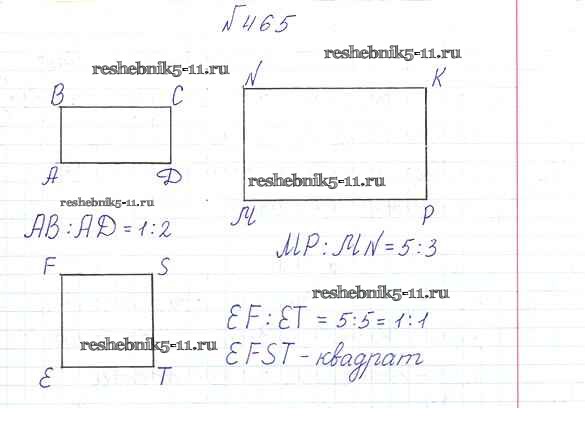 №465
reshebnik5-11.ru
reshebnik5-11.ru
N K
B C
reshebnik5-11.ru
A D
reshebnik5-11.ru
M P
AB:AD=1:2
MP:MN=5:3
F S
reshebnik5-11.ru
EF:ET=5:5=1:1
reshebnik5-11.ru
EFST-квадрат
E T